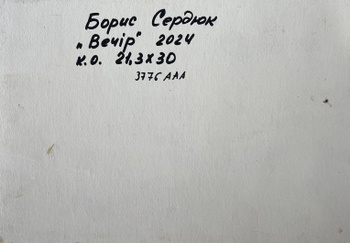 Борис Сердюк
"Вечір" 2024
к.о. 21,3х30
3776 ААА